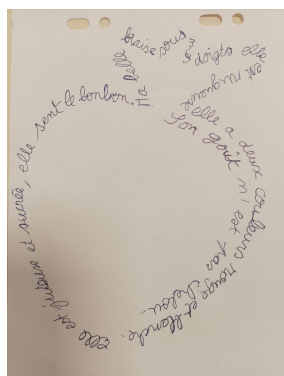 Ma belle fraise sous mes doigts elle est rugueuse
elle a deux couleurs rouge et blanche.
elle est juteuse et sucrée, elle sent le bonbon.
Son goût n'est pas chelou.